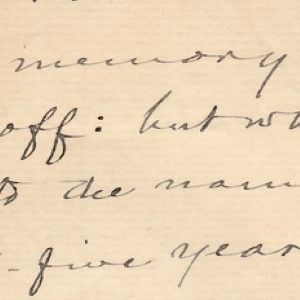 memory
off: but wh
to the nam
- five year